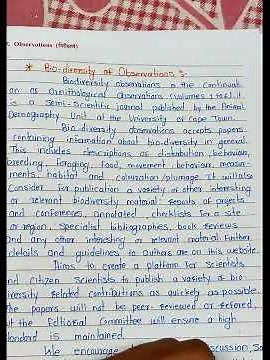 Observations (निरीक्षणे)
* Bio-diversity of Observations :
Biodiversity observations is the continuati
on as Ornithological observations (volumes 1 to 6). It
is a Semi-Scientific journal published by the Animal
Demography Unit at the University of Cape Town.
Bio-diversity observations accepts papers
containing information about bio-diversity in general.
This includes descriptions as distribution, behaviour,
breeding, foraging, food, movement, behaviour, measure-
ments, habitat and colouration/plumage. It will also
Consider for publication a variety of other interesting
or relevant biodiversity material reports of projects
and conferences, annotated checklists for a site
or region, Specialist bibliographies, book reviews
and any other interesting or relevant material. Further
details and guidelines to authors are on this website.
Aims to create a platform for Scientists
and Citizen Scientists to publish a variety of bio
diversity related contributions as quickly as possible.
The papers will not be peer-reviewed or refered,
but the Editorial Committee will ensure a high
standard is maintained.
We encourage discussion. So